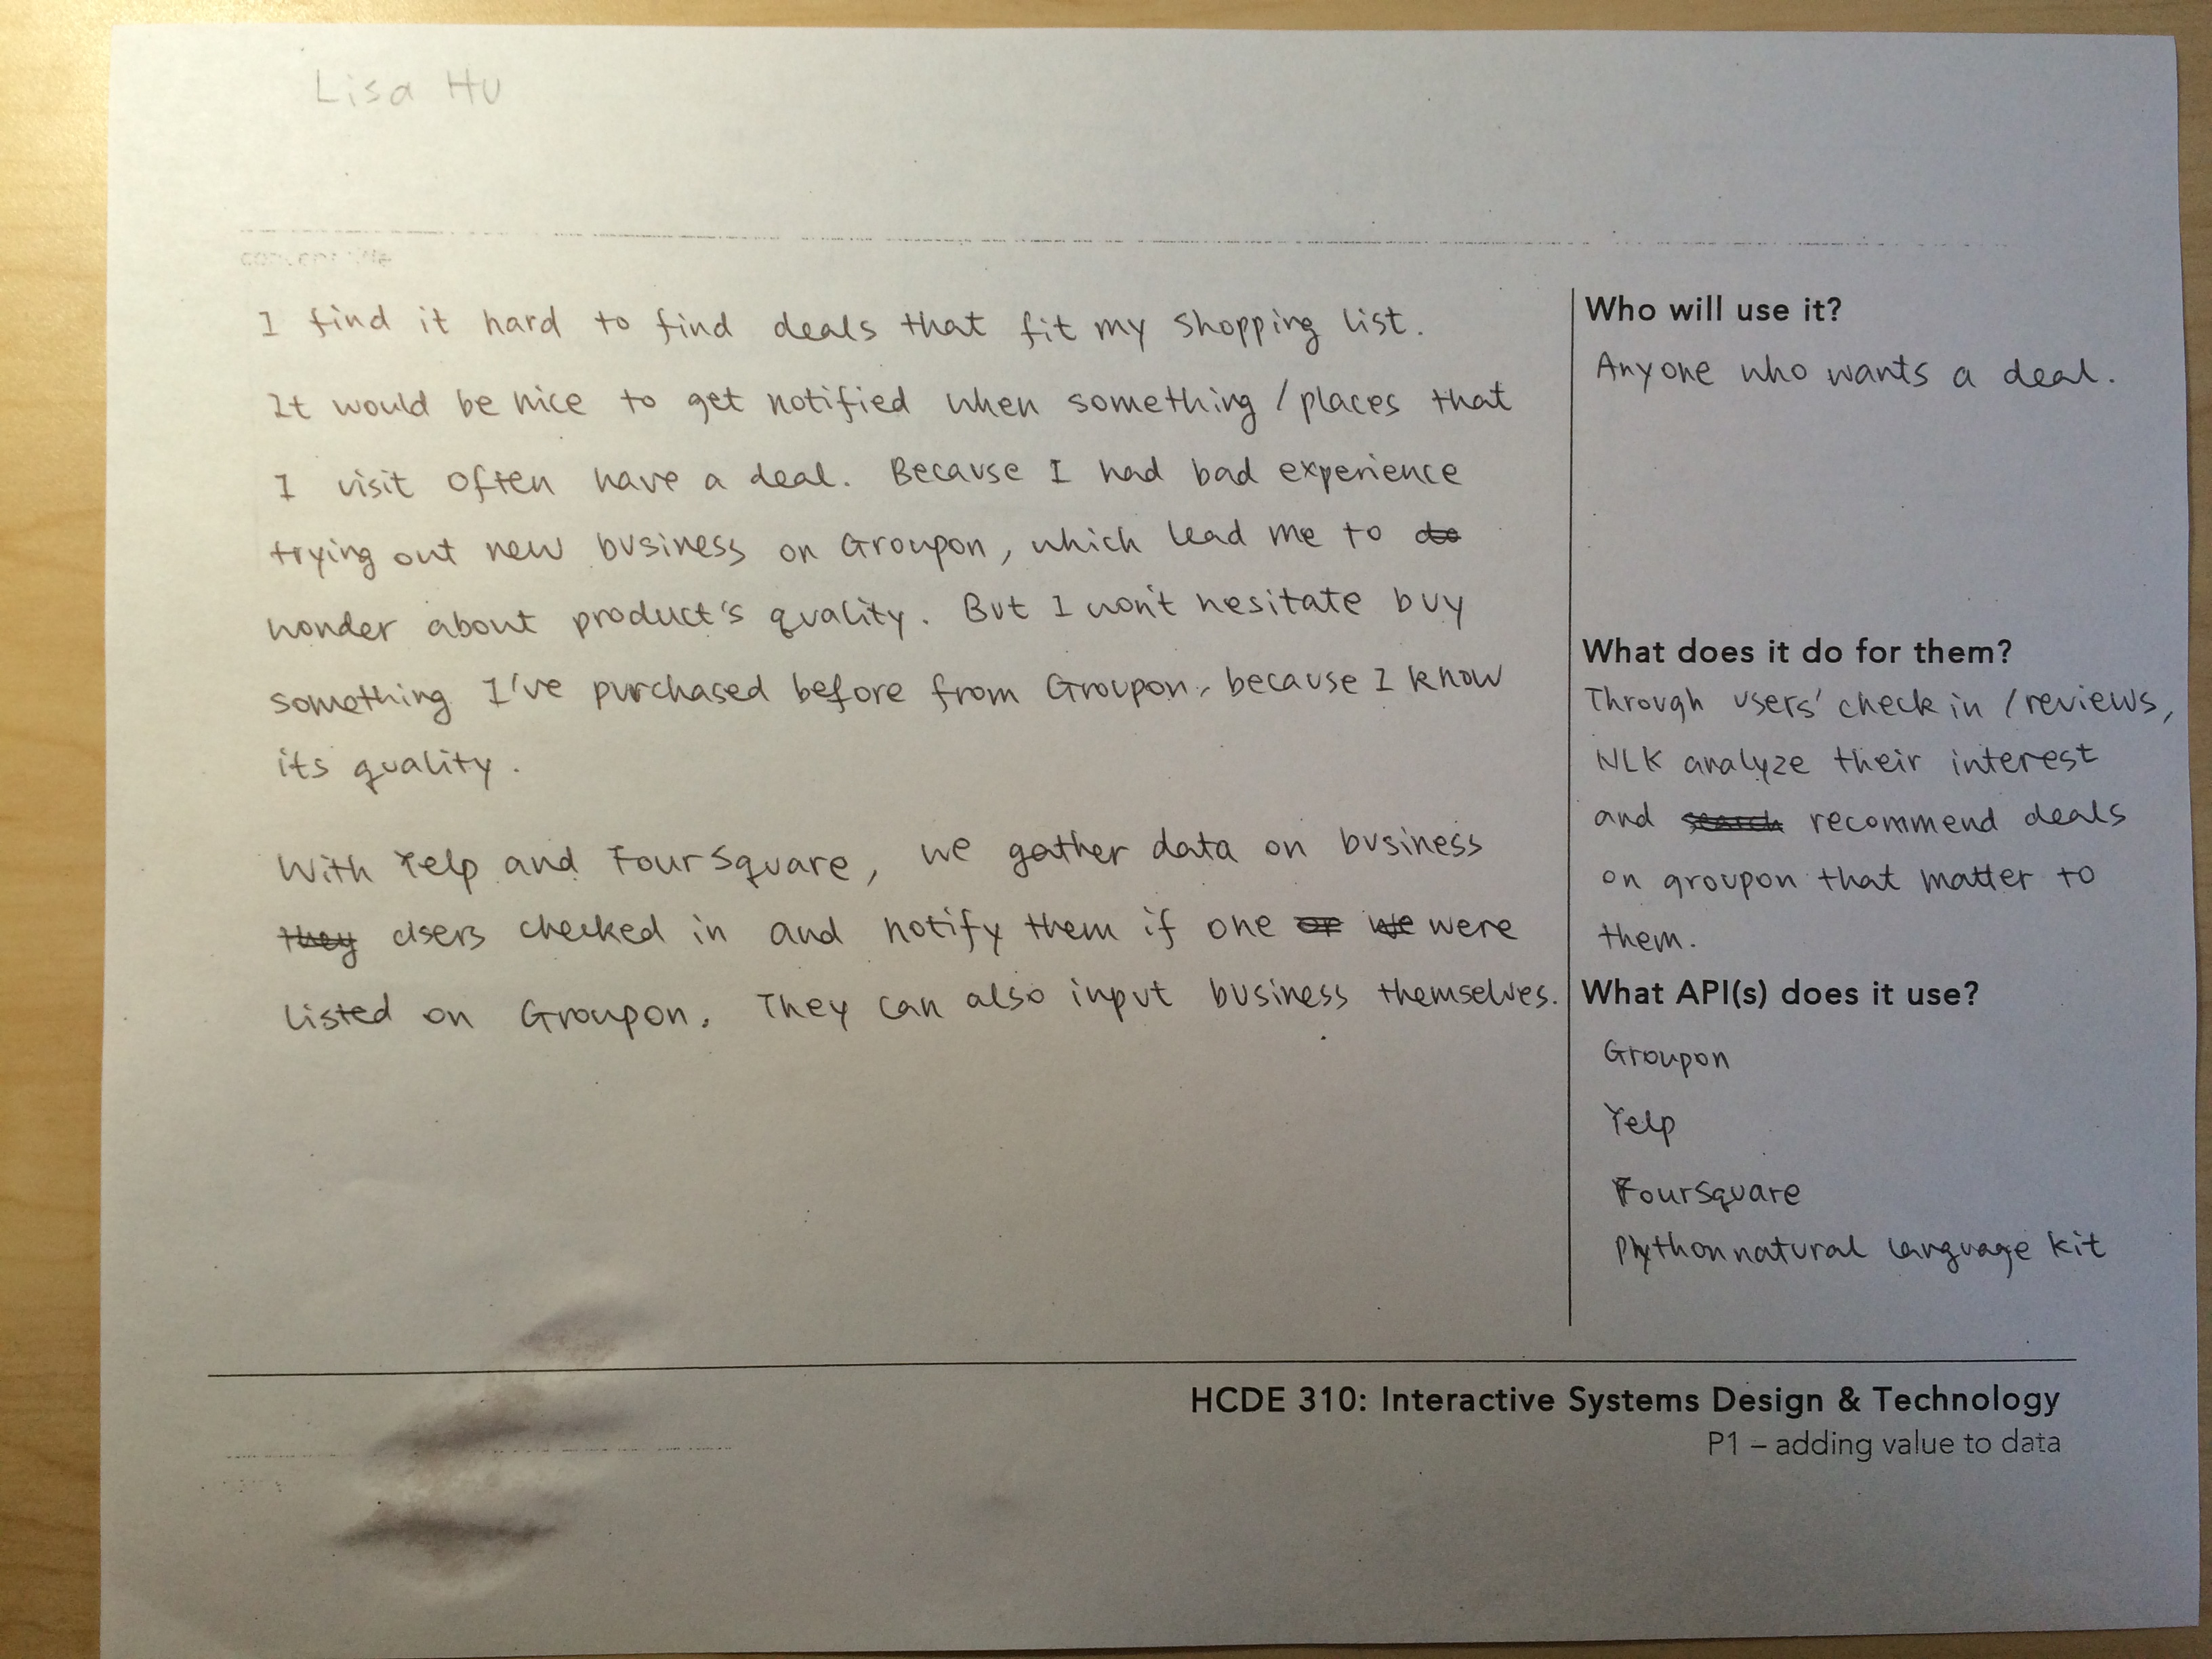 Lisa Hu
concept title
I find it hard to find deals that fit my shopping list.
It would be nice to get notified when something / places that
I visit often have a deal. Because I had bad experience
trying out new business on Groupon, which lead me to do
wonder about product's quality. But I won't hesitate buy
something I've purchased before from Groupon, because I know
its quality.
With Yelp and FourSquare, we gather data on business
they users checked in and notify them if one or we were
listed on Groupon. They can also input business themselves.
Who will use it?
Anyone who wants a deal.
What does it do for them?
Through users' check in / reviews,
NLK analyze their interest
and search recommend deals
on groupon that matter to
them.
What API(s) does it use?
Groupon
Yelp
FourSquare
Python natural language kit
HCDE 310: Interactive Systems Design & Technology
P1 – adding value to data